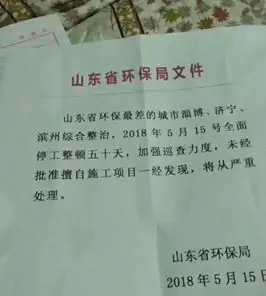 山东省环保局文件
山东省环保最差的城市淄博、济宁、
滨州综合整治，2018年5月15号全面
停工整顿五十天，加强巡查力度，未经
批准擅自施工项目一经发现，将从严重
处理。
山东省环保局
2018年5月15日